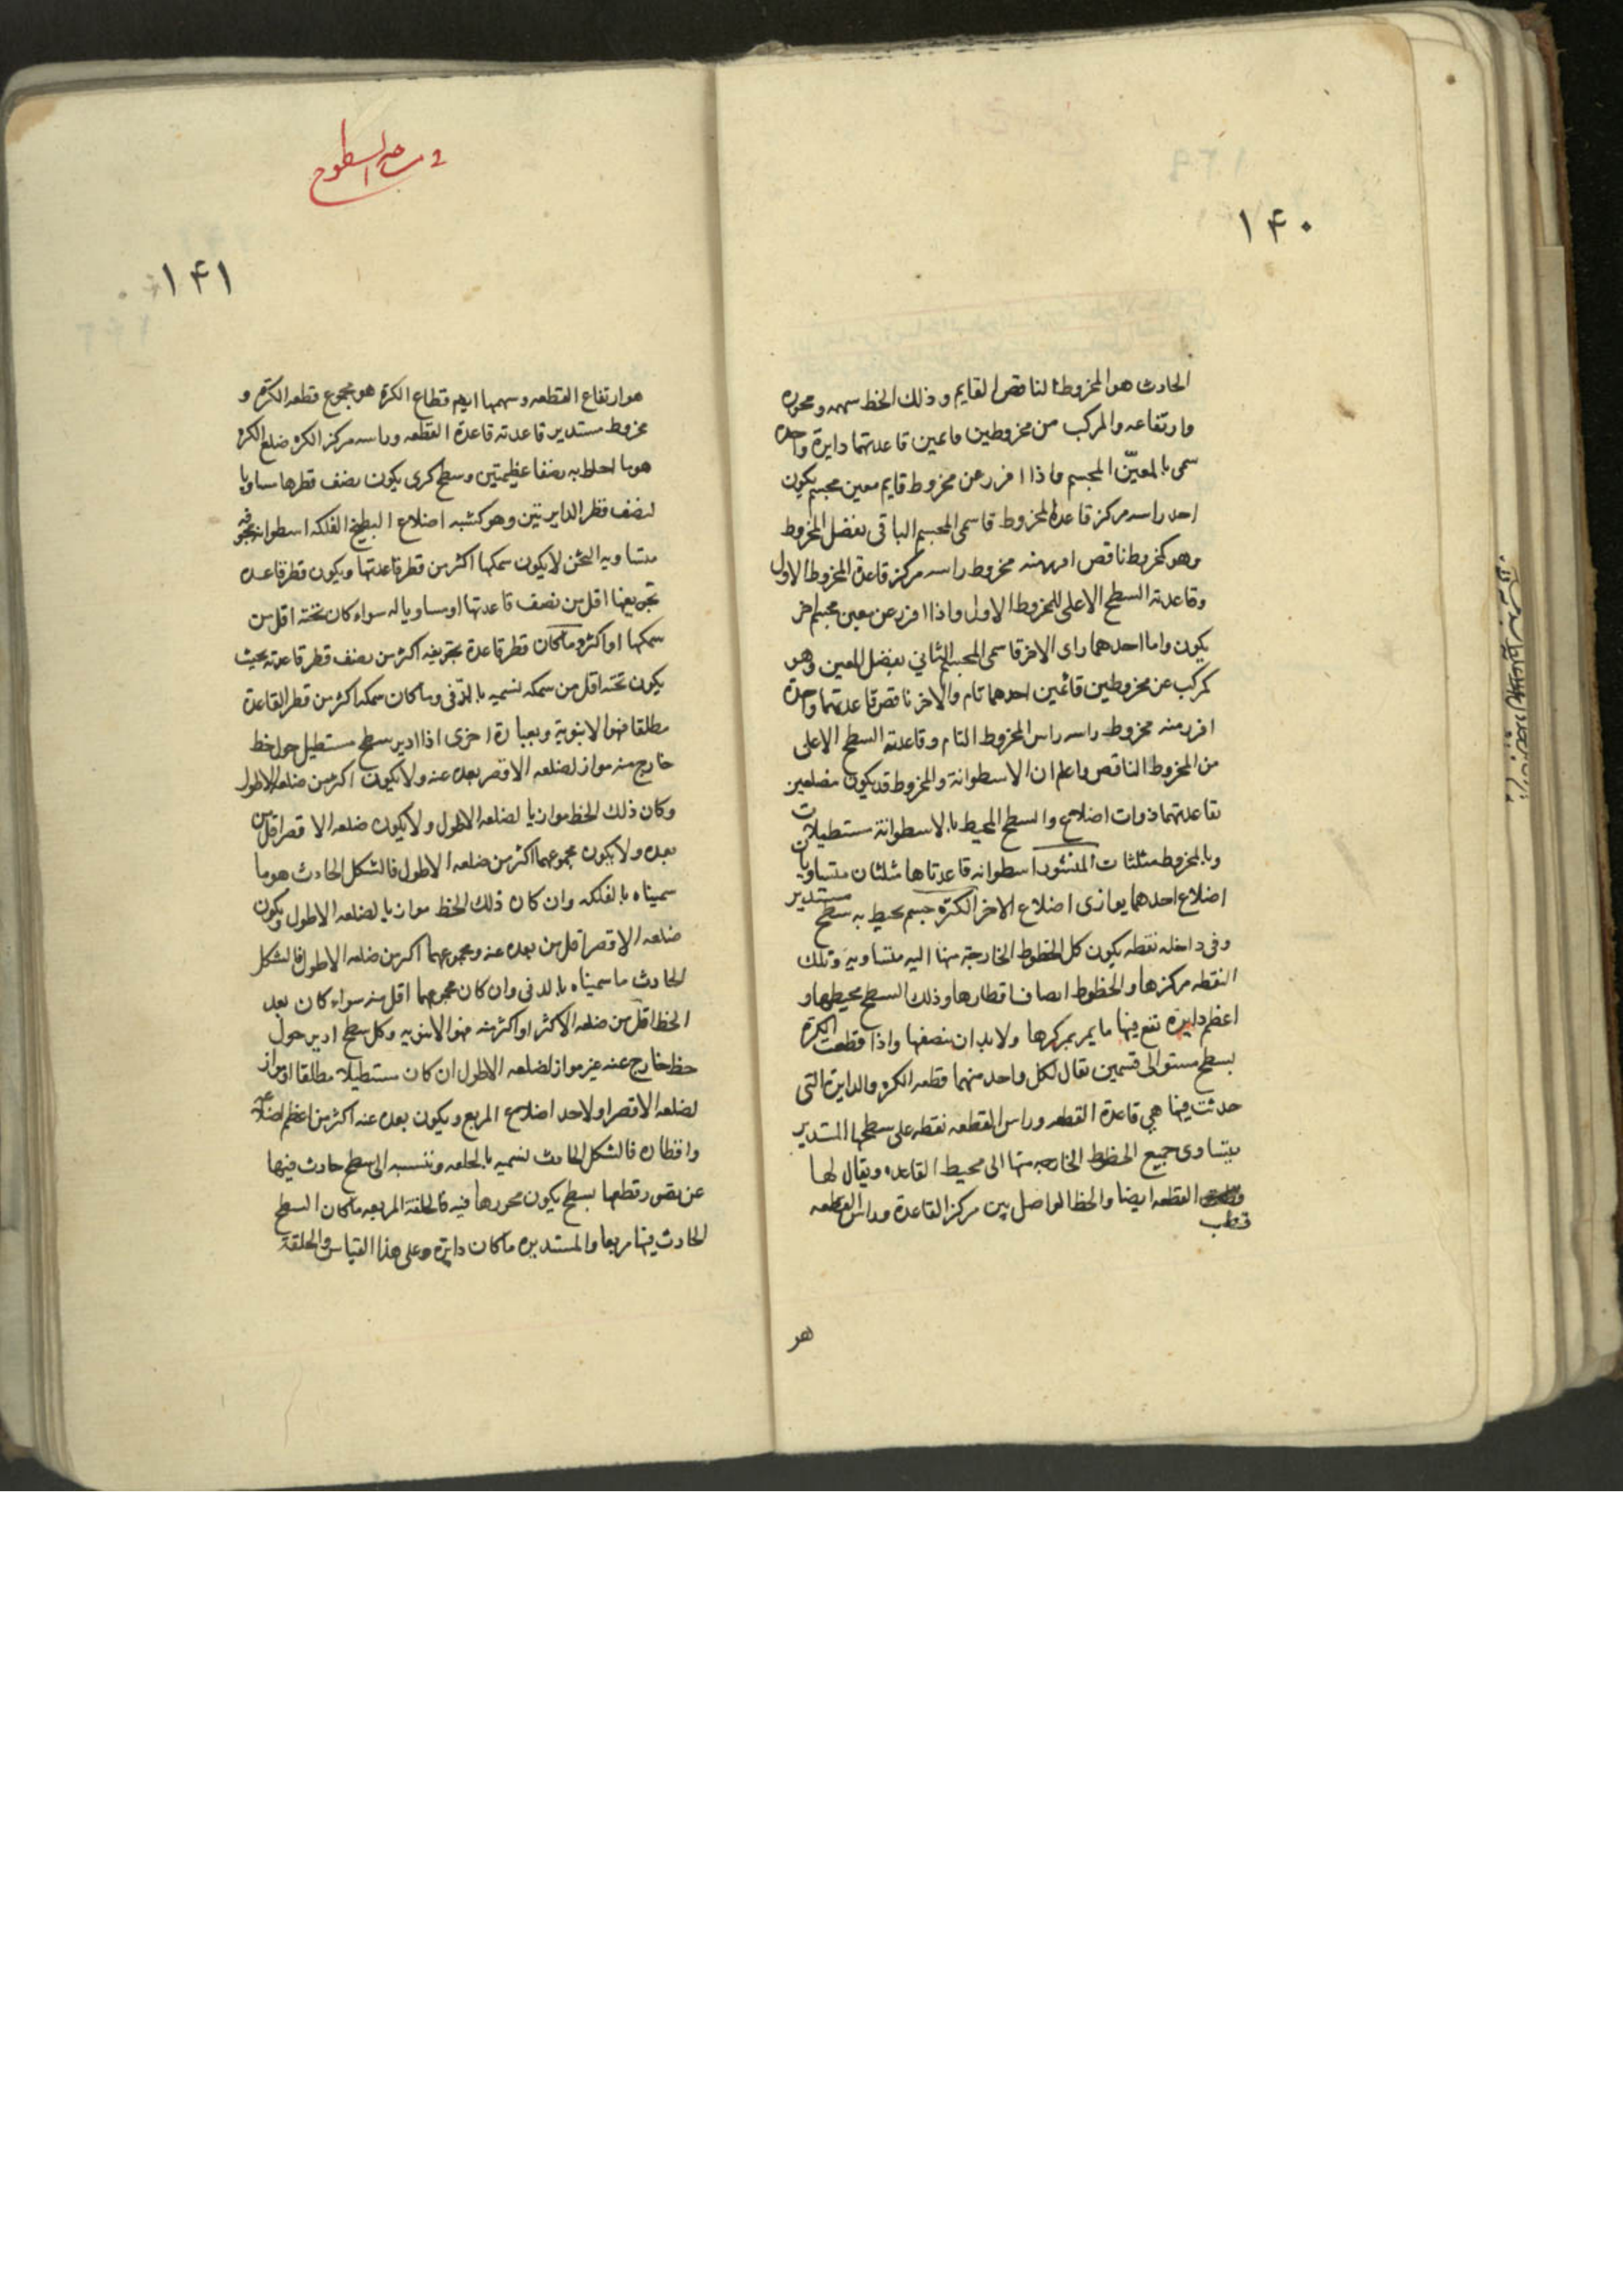 ١۴٠
الحادث هو المخروط الناقص القايم وذلك الخط سهمه ومحوره
وارتفاعه والمركب من مخروطين قاعدتهما دايرة واحدة
سمى بالمعيّن المجسم واذا افرز عن مخروط قايم معين مجسم يكون
احد راسه مركز قاعدة المخروط قاسمى المجسم الباقى بفضل المخروط
وهو كمخروط ناقص افرز منه مخروط راسه مركز قاعدة المخروط الاول
وقاعدته السطح الاعلى للمخروط الاول واذا افرز عن معين مجسم اخر
يكون احدهما راى الاخر قاسمى المجسم الثانى بفضل المعين وهو
كمركب عن مخروطين قائمين احدهما تام والاخر ناقص قاعدتهما واحدة
افرز منه مخروط راسه راس المخروط التام وقاعدته السطح الاعلى
من المخروط الناقص واعلم ان الاسطوانة والمخروط قد يكون مضلعين
قاعدتهما ذوات اضلاع والسطح المحيط بالاسطوانة مستطيلات
وبالمخروط مثلثات المنشور اسطوانه قاعدتاها مثلثان متساويان
اضلاع احدهما يوازى اضلاع الاخر الكرة جسم يحيط به سطح مستدير
وفى داخله نقطه يكون كل الخطوط الخارجة منها اليه متساويه وتلك
النقطه مركزها والخطوط انصاف اقطارها وذلك السطح محيطها و
اعظم دايرة تقع فيها ما يمر بمركزها ولا بد ان ينصفها واذا قطعت الكرة
بسطح مستو الى قسمين يقال لكل واحد منهما قطعه الكره والدايرة التى
حدثت فيها هى قاعدة القطعه وراس القطعه نقطه على سطحها المستدير
يتساوى جميع الخطوط الخارجه منها الى محيط القاعده ويقال لها
القطعه ايضا والخط الواصل بين مركز القاعدة وراس القطعه
قطب
هو
السطوح
١۴١
هو ارتفاع القطعه وسهمها ايضا قطاع الكرة هو مجموع قطعه الكرة و
مخروط مستدير قاعدته قاعدة القطعه وراسه مركز الكره ضلع الكره
هو ما احاط به نصفا عظيمتين وسطح كرى يكون نصف قطرها مساويا
لنصف قطر الدايرتين وهو كشبه اضلاع البطيخ الفلكه اسطوانه مجوفه
متساويه الثخن لا يكون سمكها اكثر من قطر قاعدتها ويكون قطر قاعده
تجويفها اقل من نصف قاعدتها او مساويا له سواء كان ثخنه اقل من
سمكها او اكثر وما كان قطر قاعدة تجويفه اكثر من نصف قطر قاعدته بحيث
يكون ثخنه اقل من سمكه نسميه بالدفى وما كان سمكه اكثر من قطر القاعدة
مطلقا فهو الانبوبة وبعبارة اخرى اذا ادير سطح مستطيل حول خط
خارج منه مواز لضلعه الاقصر بعده عنه ولا يكون اكثر من ضلعه الاطول
وكان ذلك الخط موازيا لضلعه الاطول ولا يكون ضلعه الاقصر اقل من
بعده ولا يكون مجموعهما اكثر من ضلعه الاطول فالشكل الحادث هو ما
سميناه بالفلكه وان كان ذلك الخط موازيا لضلعه الاطول ويكون
ضلعه الاقصر اقل من بعده عنه ومجموعهما اكثر من ضلعه الاطول فالشكل
الحادث ما سميناه بالدفى وان كان مجموعهما اقل منه سواء كان بعد
الخط اقل من ضلعه الاكثر او اكثر منه فهو الانبوبه وكل سطح ادير حول
خط خارج عنه غير مواز لضلعه الاطول ان كان مستطيلا مطلقا او مواز
لضلعه الاقصر او لاحد اضلاع المربع ويكون بعده عنه اكثر من اعظم اضلاعه
واقطاره فالشكل الحادث نسميه بالحلقه وننسبه الى سطح حادث فيها
عن تصور قطعها بسطح يكون محورها فيه فالحلقة المربعه ما كان السطح
الحادث فيها مربعا والمستديره ما كان دايرة وعلى هذا القياس والحلقة